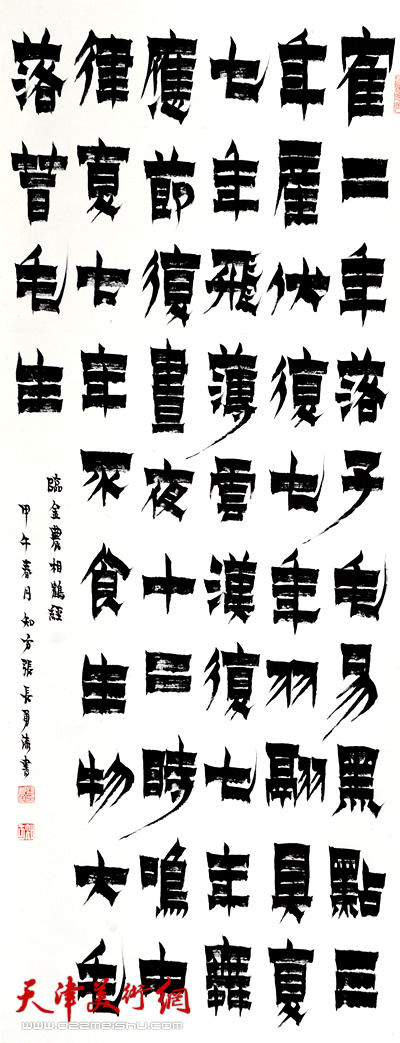 隺二年落子毛易黑點三
年產伏復七年羽翮具复
七年飛薄雲漢復七年舞
應節復晝夜十二時鳴中
律复七年不食生物大毛
落茸毛生
臨金農相鶴經
甲午春月知方張長勇書
天津美術網
www.022meishu.com